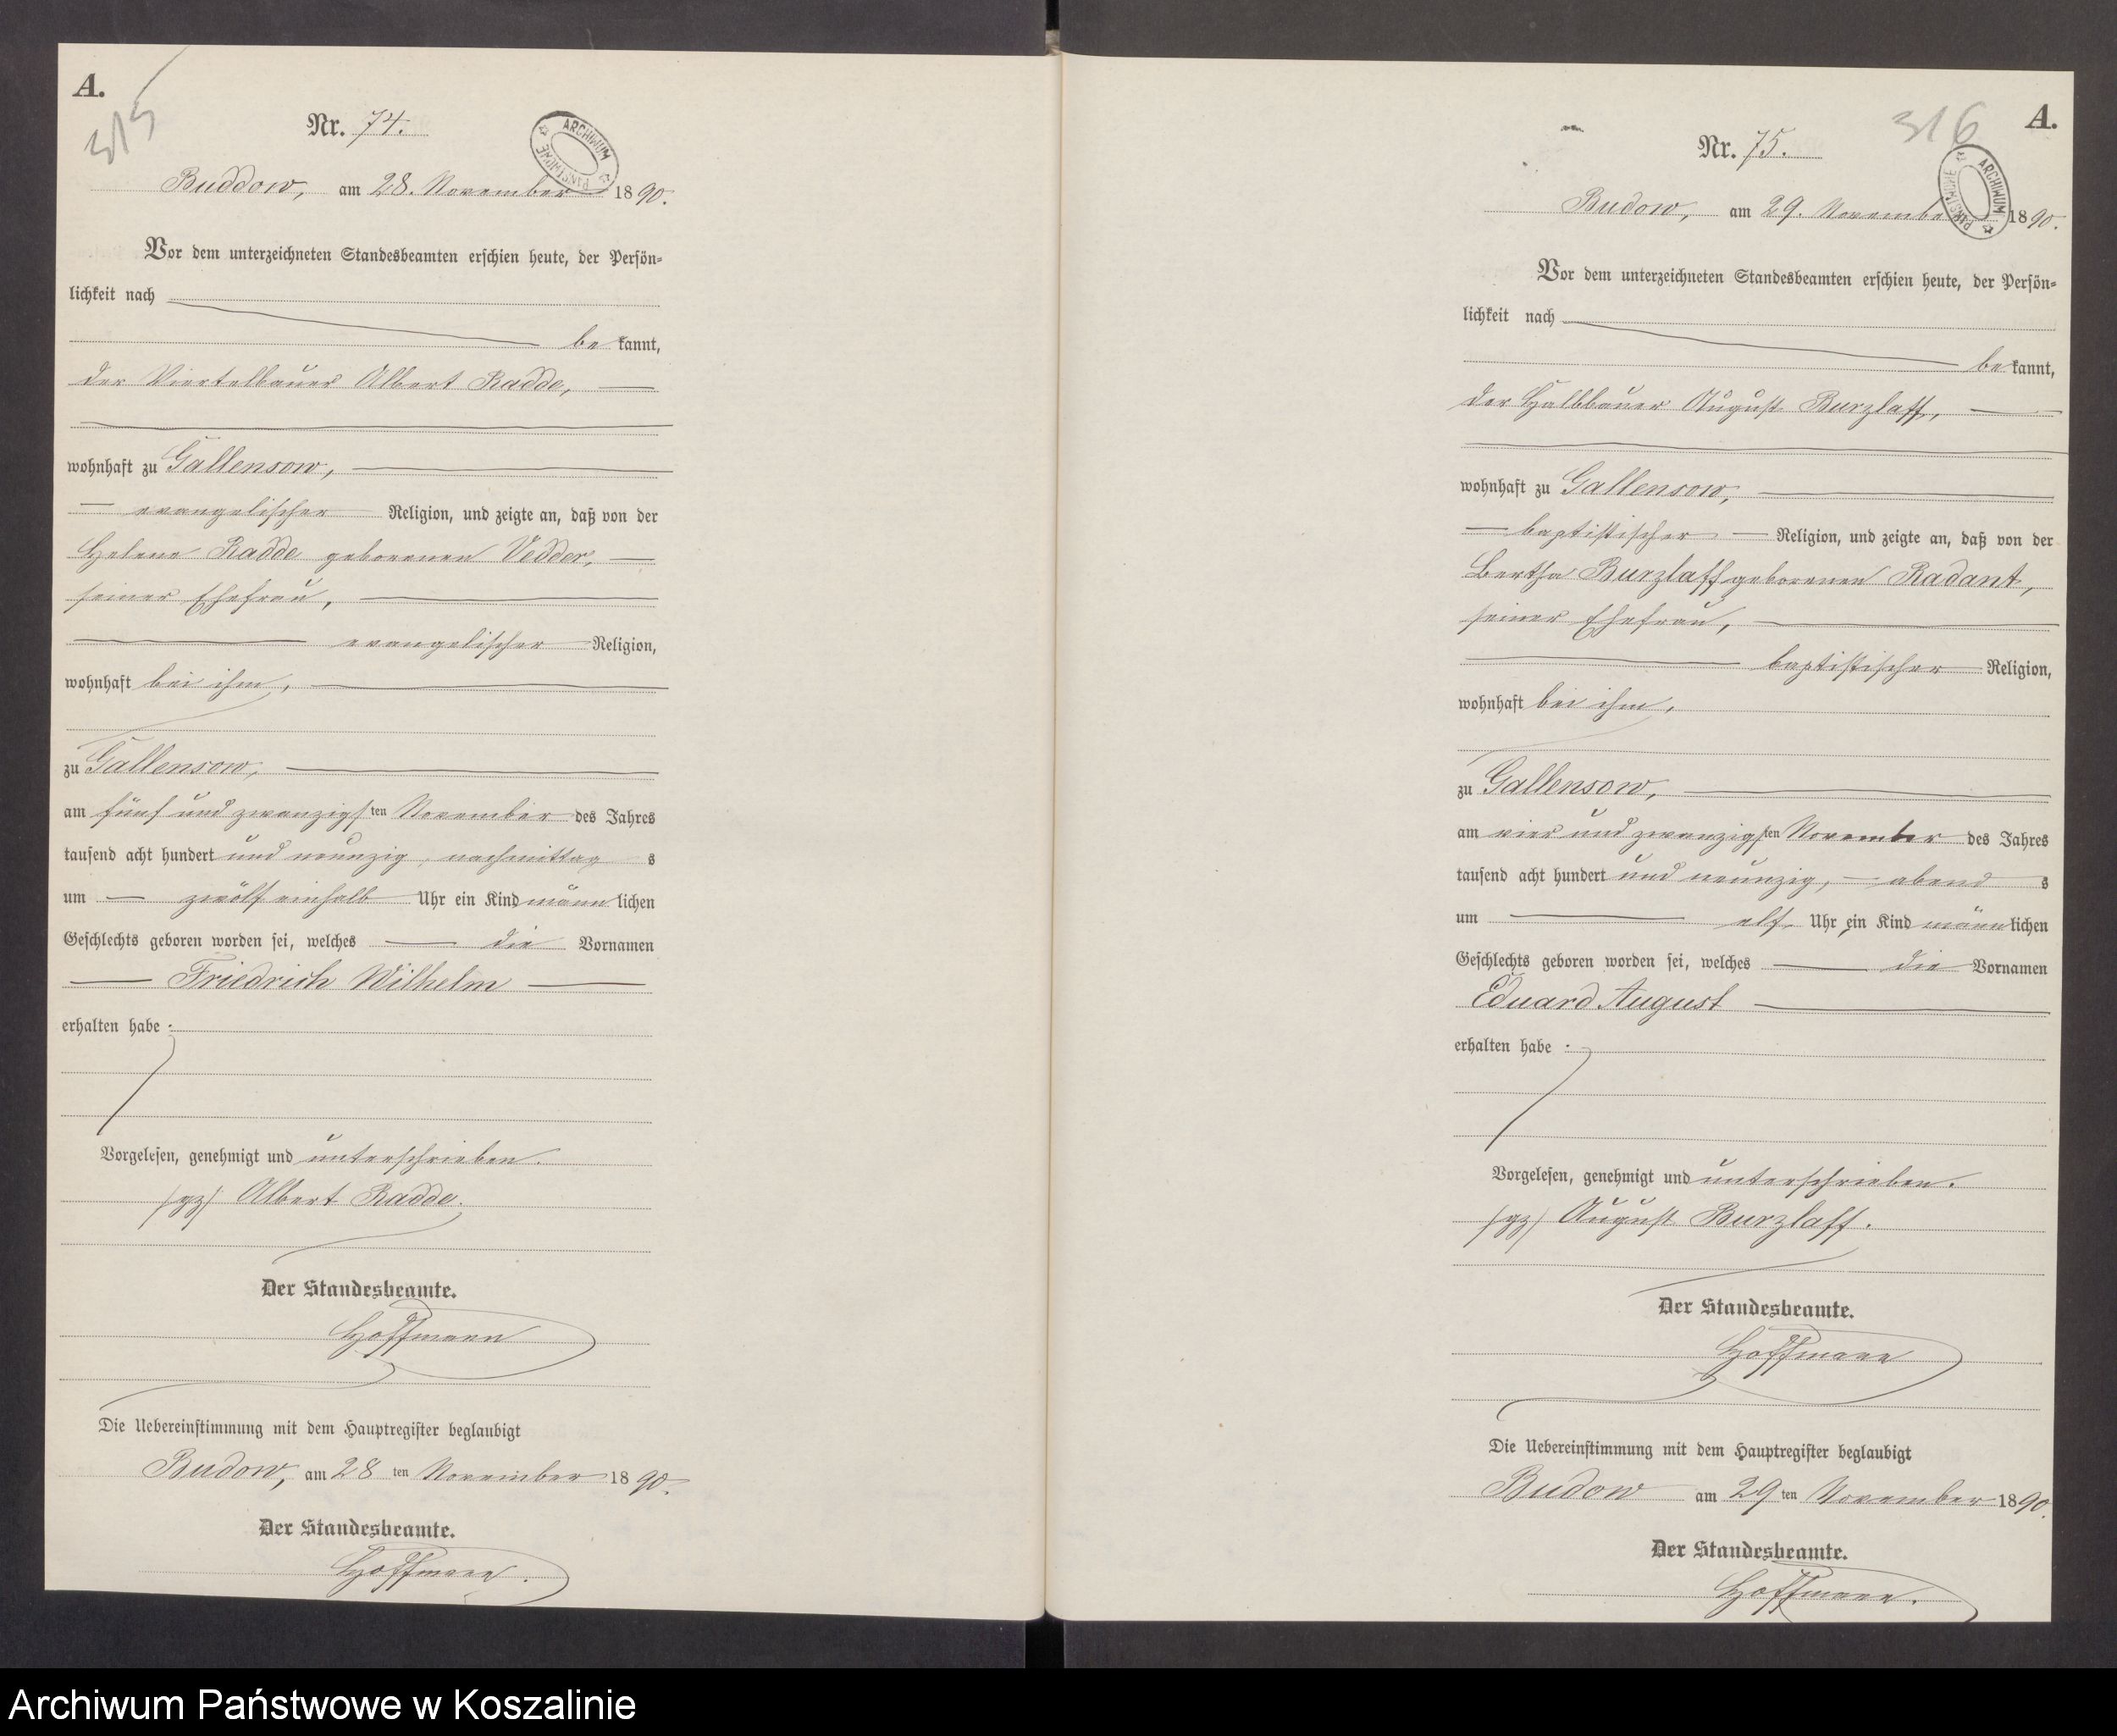 A.
315
Nr. 74.
ARCHIWUM PAŃSTWOWE
Buddow, am 28. November 1890.
Vor dem unterzeichneten Standesbeamten erschien heute, der Persön-
lichkeit nach
bekannt,
der Viertelbauer Albert Radde,
wohnhaft zu Gallensow,
evangelischer Religion, und zeigte an, daß von der
Helene Radde geborenen Vedder,
seiner Ehefrau,
evangelischer Religion,
wohnhaft bei ihm,
zu Gallensow,
am fünf und zwanzigsten November des Jahres
tausend acht hundert und neunzig, nachmittags
um zwölf einhalb Uhr ein Kind männlichen
Geschlechts geboren worden sei, welches die Vornamen
Friedrich Wilhelm
erhalten habe.
Vorgelesen, genehmigt und unterschrieben.
(gz) Albert Radde.
Der Standesbeamte.
Hoffmann
Die Uebereinstimmung mit dem Hauptregister beglaubigt
Budow, am 28ten November 1890.
Der Standesbeamte.
Hoffmann.
316
A.
Nr. 75.
ARCHIWUM PAŃSTWOWE
Budow, am 29. November 1890.
Vor dem unterzeichneten Standesbeamten erschien heute, der Persön-
lichkeit nach
bekannt,
der Halbbauer August Burzlaff,
wohnhaft zu Gallensow,
baptistischer Religion, und zeigte an, daß von der
Bertha Burzlaff geborenen Radant,
seiner Ehefrau,
baptistischer Religion,
wohnhaft bei ihm,
zu Gallensow,
am vier und zwanzigsten November des Jahres
tausend acht hundert und neunzig, abends
um elf Uhr ein Kind männlichen
Geschlechts geboren worden sei, welches die Vornamen
Eduard August
erhalten habe.
Vorgelesen, genehmigt und unterschrieben.
(gz) August Burzlaff.
Der Standesbeamte.
Hoffmann
Die Uebereinstimmung mit dem Hauptregister beglaubigt
Budow am 29ten November 1890.
Der Standesbeamte.
Hoffmann.
Archiwum Państwowe w Koszalinie